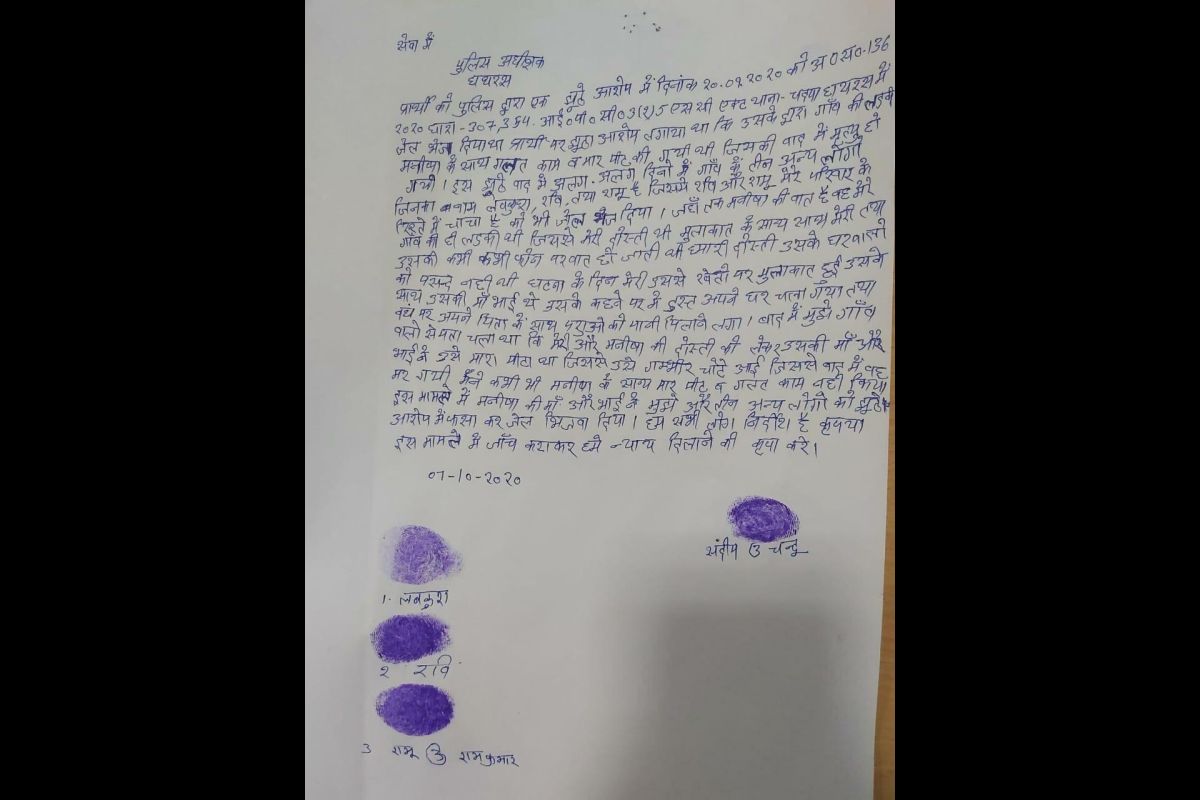 सेवा में
पुलिस अधीक्षक
हाथरस
प्रार्थी को पुलिस द्वारा एक झूठे आरोप में दिनांक २०.०९.२०२० को अ०स०-136
२०२० धारा-307,354. आई०पी०सी० 3(2)5 एस सी एक्ट थाना- चन्दपा हाथरस में
जेल भेज दिया था प्रार्थी पर झूठा आरोप लगाया था कि उसके द्वारा गाँव की लड़की
मनीषा के साथ गलत काम व मार पीट की गयी थी जिसकी बाद में मृत्यु हो
गयी। इस झूठे वाद में अलग-अलग दिनों में गाँव के तीन अन्य लोगो
जिनका नाम लवकुश, रवि, तथा रामू है जिसमें रवि और रामू मेरे परिवार के
रिश्ते में चाचा है को भी जेल भेज दिया। जहाँ तक मनीषा की बात है वह मेरे
गाँव की ही लड़की थी जिससे मेरी दोस्ती थी मुलाकात के साथ साथ मेरी तथा
उसकी कभी कभी फोन पर बात हो जाती थी हमारी दोस्ती उसके घरवालो
को पसन्द नही थी घटना के दिन मेरी उससे खेतो पर मुलाकात हुई उसके
साथ उसकी माँ भाई थे उसके कहने पर में अपने घर चला गया तथा
वहा पर अपने पिता के साथ पशुओ को पानी पिलाने लगा। बाद में मुझे गाँव
वालो से पता चला था कि मेरी और मनीषा की दोस्ती को लेकर उसकी माँ और
भाई ने उसे मारा पीटा था जिससे उसे गम्भीर चोटे आई जिससे बाद में वह
मर गयी मैंने कभी भी मनीषा के साथ मार पीट व गलत काम नही किया
इस मामले में मनीषा की माँ और भाई ने मुझे और तीन अन्य लोगो को झूठे
आरोप में फसा कर जेल भिजवा दिया। हम सभी लोग निर्दोष है कृपया
इस मामले में जाँच कराकर हमे न्याय दिलाने की कृपा करे।
07-10-2020
संदीप उ चन्दू
1. लवकुश
२ रवि
3 रामू उ रामकुमार